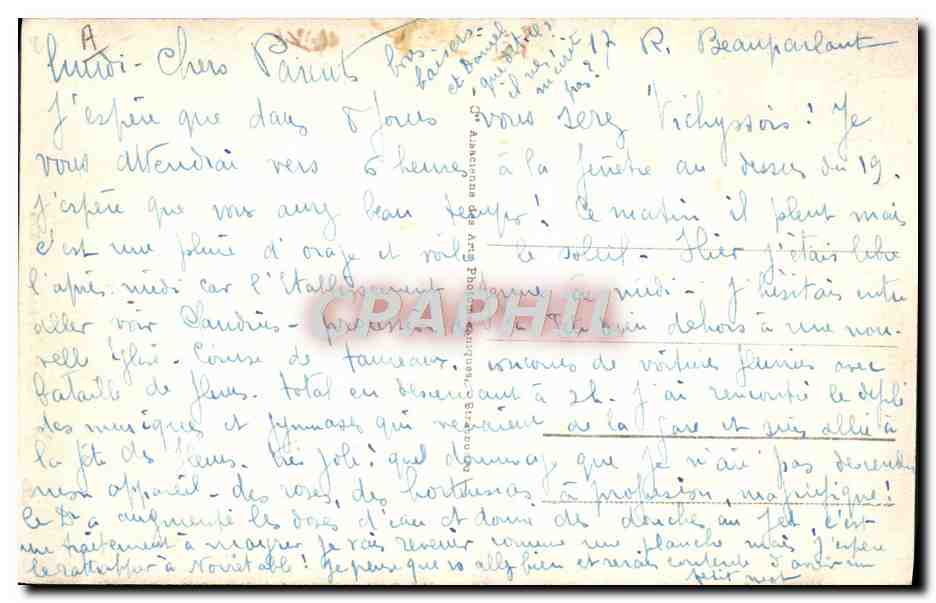 A
lundi - Chers Parents
17 R. Beauparlant
bons baisers
et Daniel
que dit-il
il n'écrit pas ?
J'espère que dans 8 jours vous serez Vichyssois ! Je
vous attendrai vers 6 heures à la fenêtre au dessus du 19.
J'espère que vous aurez beau temps ! Ce matin il pleut mais
c'est une pluie d'orage et voilà le soleil - Hier j'étais libre
l'après-midi car l'Etablissement ferme à midi - J'hésitais entre
aller voir - procession dehors à une nou-
velle Eglise - Course de taureaux. concours de voitures fleuries avec
bataille de fleurs. total en descendant à 2h. j'ai rencontré le défilé
des musiques et gymnases qui venaient de la gare et suis allée à
la fête des fleurs. très joli ! quel dommage que je n'aie pas descendu
mon appareil - des roses, des hortensias à profusion, magnifique !
le Dr a augmenté les doses d'eau et donné des douches au jet, c'est
une traitement à maigrir je vais revenir comme une planche mais j'espère
le rattrapper à Noirétable ! Je pense que vs allez bien et serais contente d'avoir un
petit mot
Cie Alsacienne des Arts Photomécaniques, Strasbourg
CPAPHIL